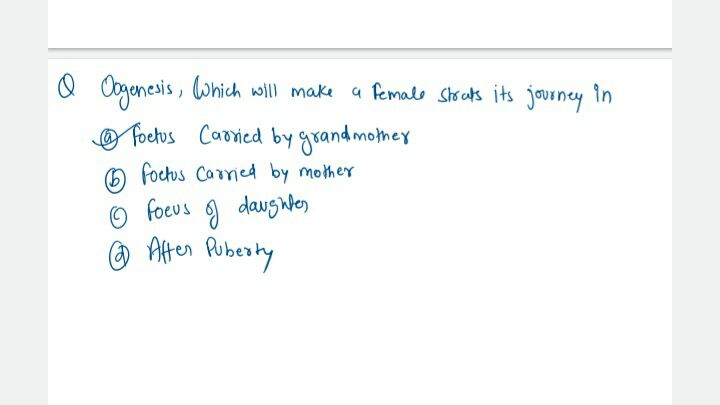 Q Oogenesis, Which will make a female strats its journey in
(a) foetus Carried by grandmother
(b) foetus Carried by mother
(c) foeus of daughter
(d) After Puberty